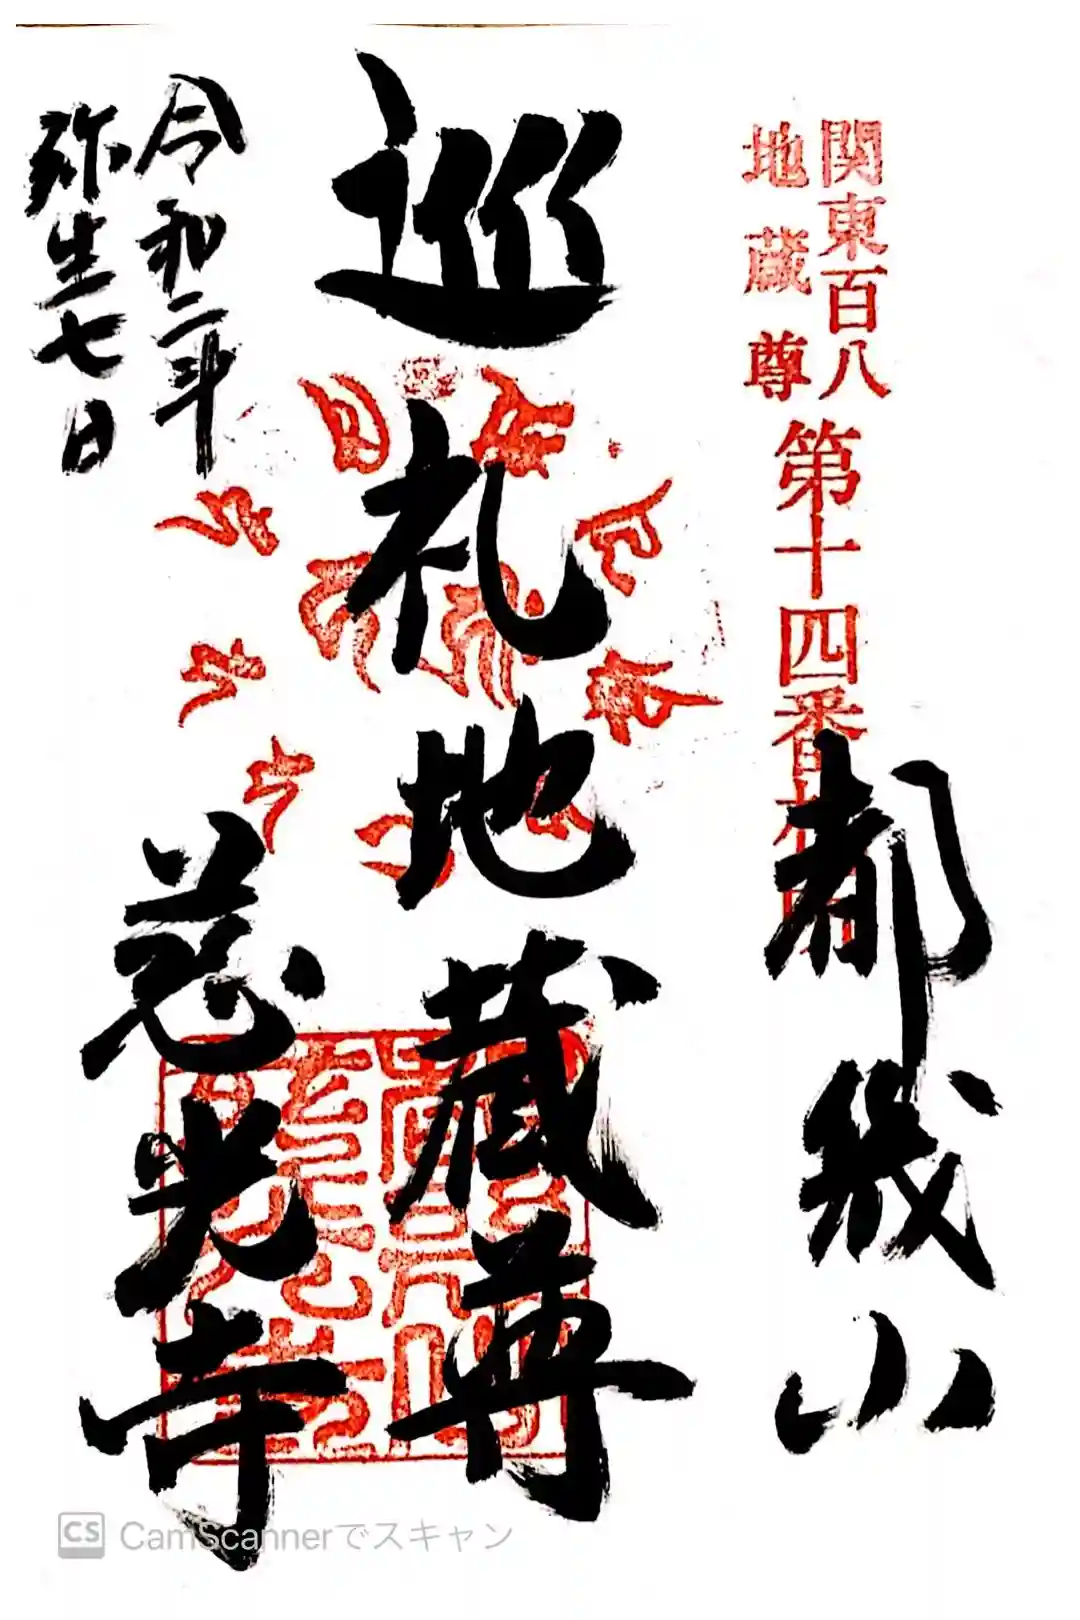 関東百八
地蔵尊
第十四番
都幾山
巡礼地蔵尊
慈光寺
令和二年
弥生七日
CS CamScannerでスキャン